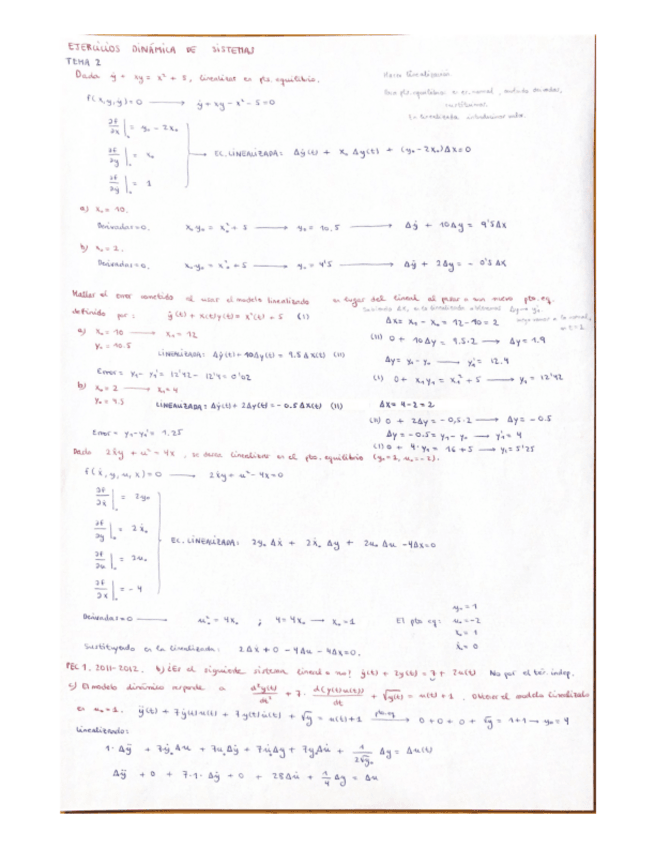 EJERCICIOS DINÁMICA DE SISTEMAS
TEMA 2
Dada ẏ + xy = x² + 5, linealizar en pto. equilibrio.
f(x,y,ẏ)=0 → ẏ + xy - x² - 5 = 0
∂f/∂x|₀ = y₀ - 2x₀
∂f/∂y|₀ = x₀
∂f/∂ẏ|₀ = 1
EC. LINEALIZADA: Δẏ(t) + x₀ Δy(t) + (y₀ - 2x₀)Δx = 0
a) x₀ = 10.
Derivadas = 0. x₀y₀ = x₀² + 5 → y₀ = 10.5 → Δẏ + 10Δy = 9'5Δx
b) x₀ = 2.
Derivadas = 0. x₀y₀ = x₀² + 5 → y₀ = 4'5 → Δẏ + 2Δy = -0'5Δx
Hallar el error cometido al usar el modelo linealizado en lugar del lineal al pasar a un nuevo pto. eq.
definido por: ẏ(t) + x(t)y(t) = x²(t) + 5 (I)
a) x₀ = 10 → x₁ = 12
y₀ = 10.5
LINEALIZADA: Δẏ(t) + 10Δy(t) = 9.5Δx(t) (II)
Error = y₁ - y₁' = 12'42 - 12'4 = 0'02
Δx = x₁ - x₀ = 12 - 10 = 2
(II) 0 + 10Δy = 9.5·2 → Δy = 1.9
Δy = y₁ - y₀ → y₁' = 12.4
(I) 0 + x₁y₁ = x₁² + 5 → y₁ = 12'42
b) x₀ = 2 → x₁ = 4
y₀ = 4.5
LINEALIZADA: Δẏ(t) + 2Δy(t) = -0.5Δx(t) (II)
Error = y₁ - y₁' = 1.25
Δx = 4 - 2 = 2
(II) 0 + 2Δy = -0,5·2 → Δy = -0.5
Δy = -0.5 = y₁ - y₀ → y₁' = 4
(I) 0 + 4·y₁ = 16 + 5 → y₁ = 5'25
Dado 2ẋy + u² = 4x, se desea linealizar en el pto. equilibrio (y₀=1, u₀=-2).
f(ẋ, y, u, x) = 0 → 2ẋy + u² - 4x = 0
∂f/∂ẋ|₀ = 2y₀
∂f/∂y|₀ = 2ẋ₀
∂f/∂u|₀ = 2u₀
∂f/∂x|₀ = -4
EC. LINEALIZADA: 2y₀Δẋ + 2ẋ₀Δy + 2u₀Δu - 4Δx = 0
Derivadas = 0 → u₀² = 4x₀ ; 4 = 4x₀ → x₀ = 1
El pto eq: y₀ = 1
u₀ = -2
x₀ = 1
ẋ₀ = 0
Sustituyendo en la linealizada: 2Δẋ + 0 - 4Δu - 4Δx = 0.
PEC 1. 2011-2012. b) ¿Es el siguiente sistema lineal o no? ẏ(t) + 2y(t) = 7 + 2u(t) No por el tér. indep.
c) El modelo dinámico responde a d²y(t)/dt² + 7·d(y(t)u(t))/dt + √y(t) = u(t) + 1. Obtener el modelo linealizado
en u₀ = 1. ÿ(t) + 7ẏ(t)u(t) + 7y(t)u̇(t) + √y = u(t) + 1 → pto. eq. 0 + 0 + 0 + √y = 1 + 1 → y₀ = 4
Linealizado:
1·Δÿ + 7ẏ₀Δu + 7u₀Δẏ + 7u̇₀Δy + 7y₀Δu̇ + 1/(2√y₀) Δy = Δu(t)
Δÿ + 0 + 7·1·Δẏ + 0 + 28Δu̇ + 1/4 Δy = Δu